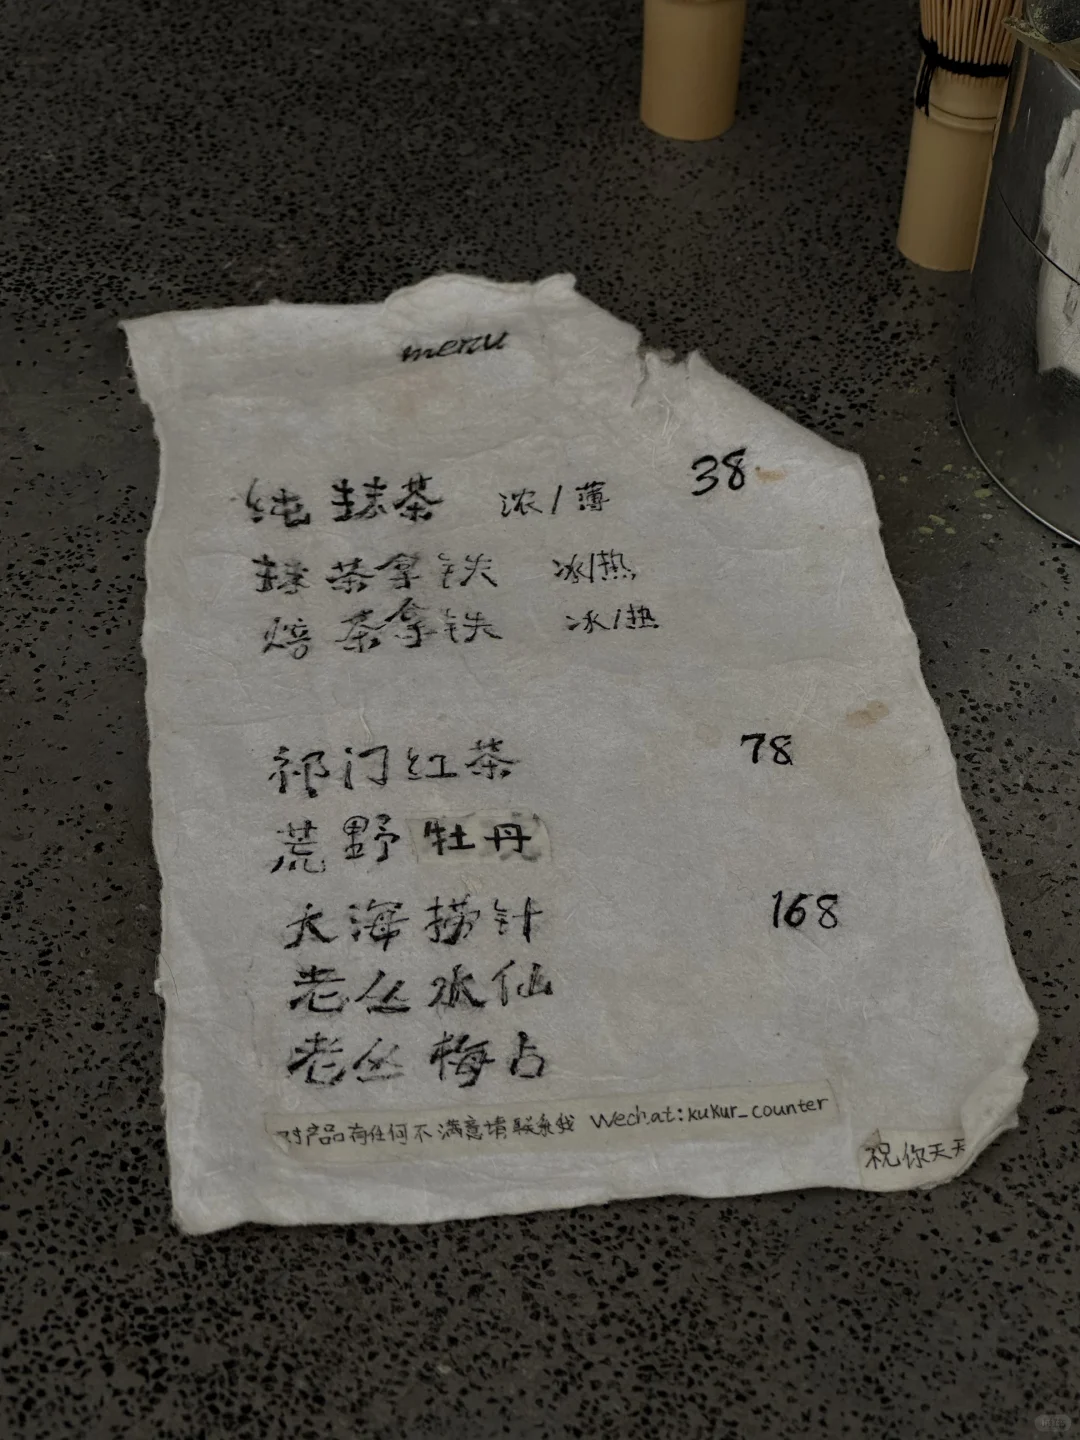 menu
纯抹茶 浓/薄 38
抹茶拿铁 冰/热
焙茶拿铁 冰/热
祁门红茶 78
荒野牡丹
大海捞针 168
老丛水仙
老丛梅占
对产品有任何不满意请联系我 Wechat:kukur_counter
祝你天天